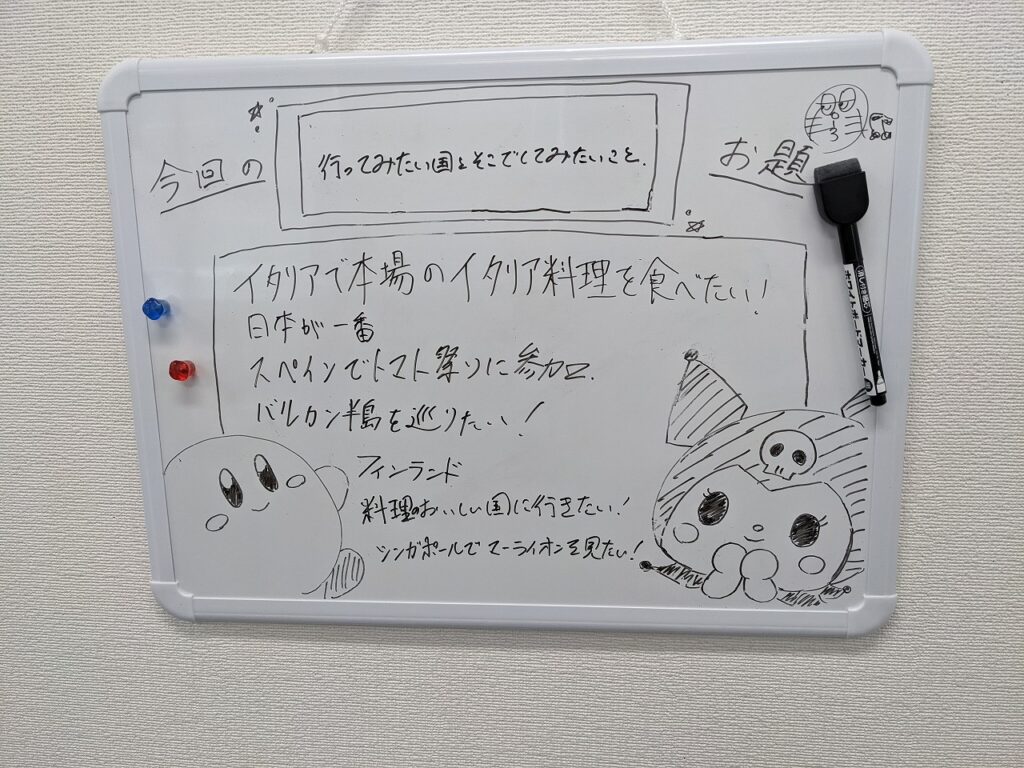 今回の
行ってみたい国とそこでしてみたいこと.
お題
イタリアで本場のイタリア料理を食べたい!
日本が一番
スペインでトマト祭りに参加.
バルカン半島を巡りたい!
フィンランド
料理のおいしい国に行きたい!
シンガポールでマーライオンを見たい!
ホワイトボードマーカー